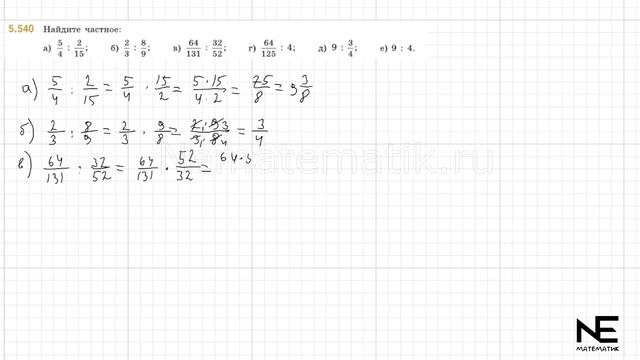 5.540 Найдите частное:
а) 5/4 : 2/15; б) 2/3 : 8/9; в) 64/131 : 32/52; г) 64/125 : 4; д) 9 : 3/4; е) 9 : 4.
а) 5/4 : 2/15 = 5/4 · 15/2 = 5·15/4·2 = 75/8 = 9 3/8
б) 2/3 : 8/9 = 2/3 · 9/8 = 2₁·9 3/3₁·8₄ = 3/4
в) 64/131 : 32/52 = 64/131 · 52/32 = 64·5
Nematematik.ru
NE
МАТЕМАТИК